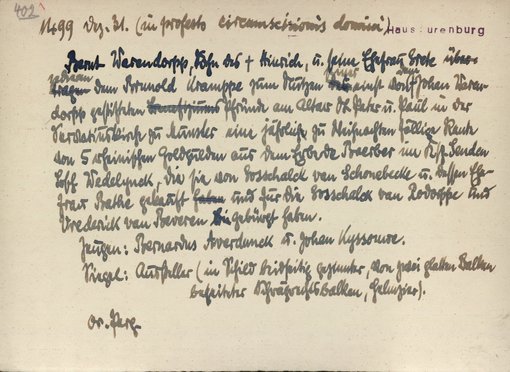 402
1499 Dez. 31. (in profesto circumscisionis domini) Haus Surenburg
Bernt Warendorpp, Sohn des † Hinrich, u. seine Ehefrau Grete über-
tragen dem Bernold Krampe zum Nutzen einst von Johan Waren-
dorpp gestifteten Pfründe am Altar St. Peter u. Paul in der
Servatiuskirche zu Münster eine jährlich zu Weihnachten fällige Rente
von 5 rheinischen Goldgulden aus dem Erbe in Kspl. Senden
Bsch. Wedelynck, die sie von Gosschalck van Schonebecke u. dessen Ehe-
frau Bathe gekauft haben und für die Gosschalck van und
Frederick van Beveren gebürgt haben.
Zeugen: Bernardus Averdunck u. Johan
Siegel: Aussteller (in Schild beidseitig gezinnter, von zwei glatten Balken
begleiteter Schrägrechtsbalken, Helmzier).
Or. Perg.